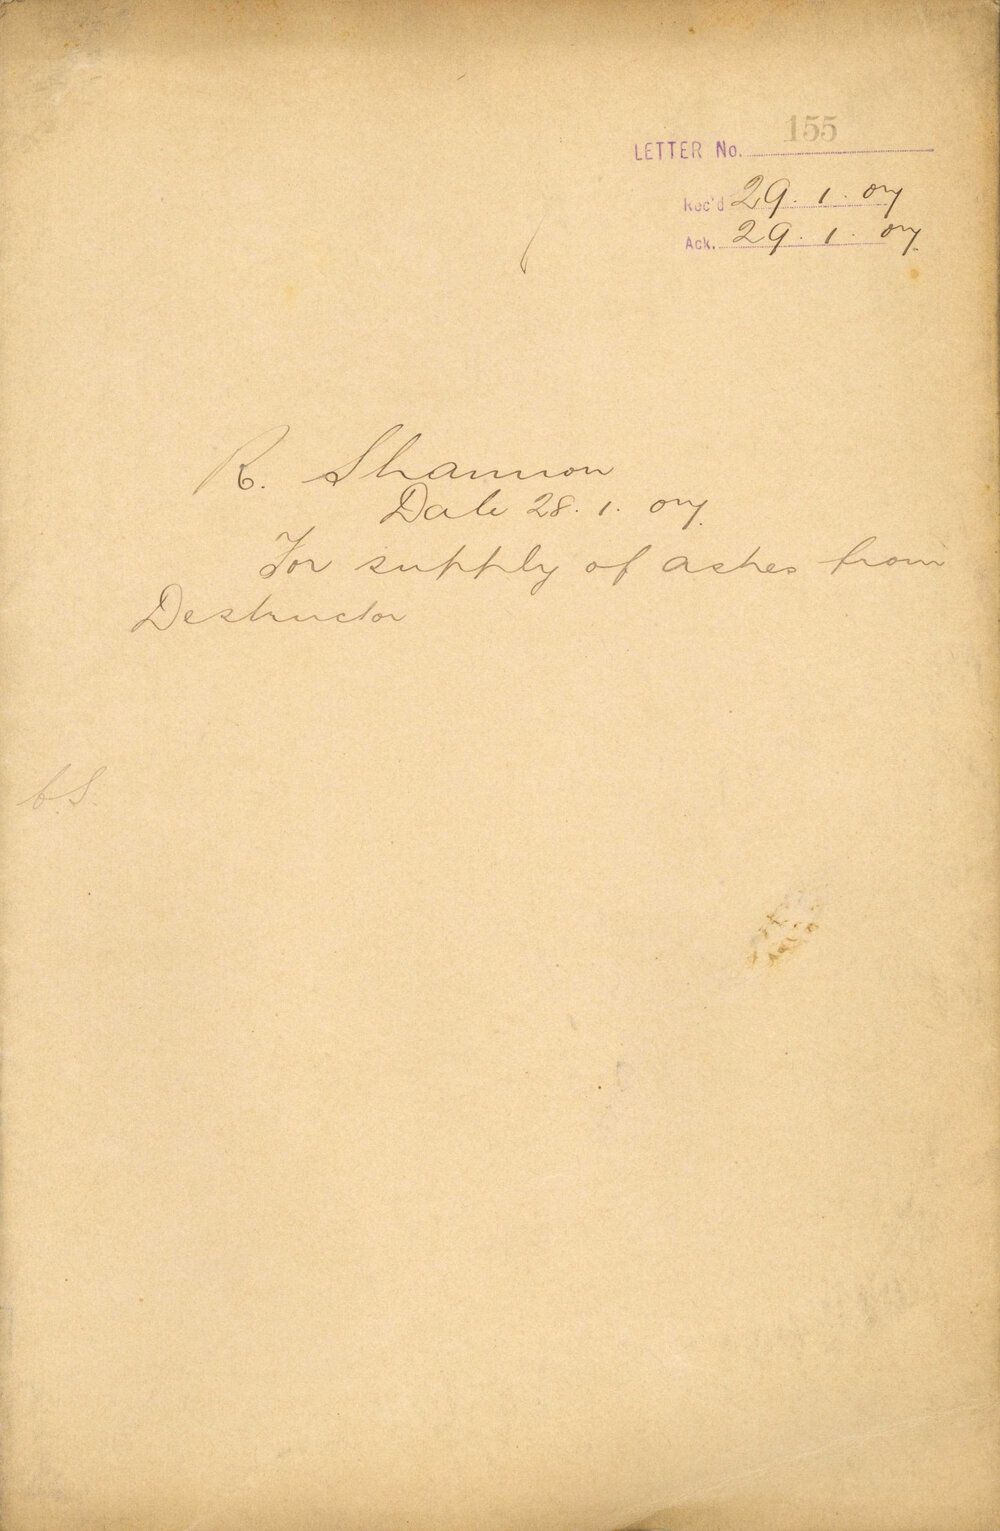 LETTER No. 155
Rec'd 29. 1. 07
Ack. 29. 1. 07.
R. Shannon
Date 28. 1. 07.
For supply of ashes from
Destructor
C.S.